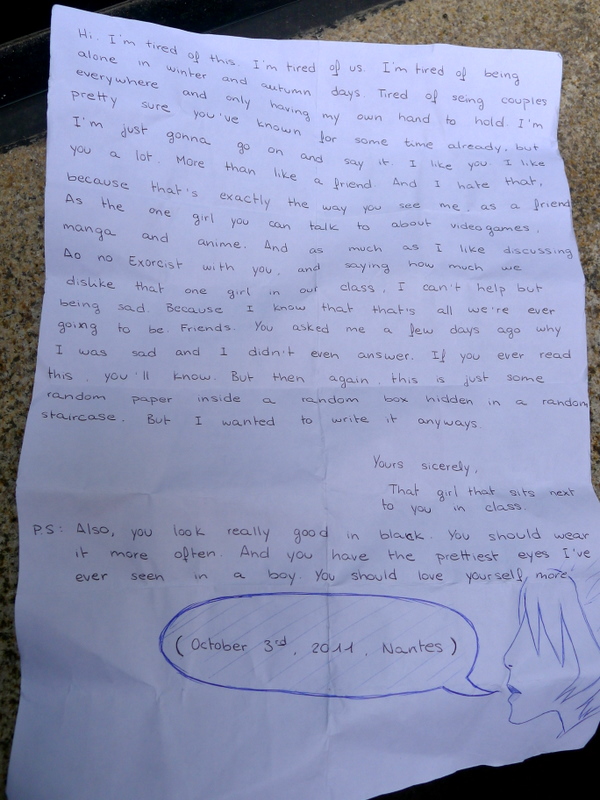 Hi. I'm tired of this. I'm tired of us. I'm tired of being
alone in winter and autumn days. Tired of seing couples
everywhere and only having my own hand to hold. I'm
pretty sure you've known for some time already, but
I'm just gonna go on and say it. I like you. I like
you a lot. More than like a friend. And I hate that,
because that's exactly the way you see me, as a friend
As the one girl you can talk to about videogames,
manga and anime. And as much as I like discussing
Ao no Exorcist with you, and saying how much we
dislike that one girl in our class, I can't help but
being sad. Because I know that that's all we're ever
going to be. Friends. You asked me a few days ago why
I was sad and I didn't even answer. If you ever read
this, you'll know. But then again, this is just some
random paper inside a random box hidden in a random
staircase. But I wanted to write it anyways.
Yours sicerely,
That girl that sits next
to you in class.
PS: Also, you look really good in black. You should wear
it more often. And you have the prettiest eyes I've
ever seen in a boy. You should love yourself more.
(October 3rd, 2011, Nantes)